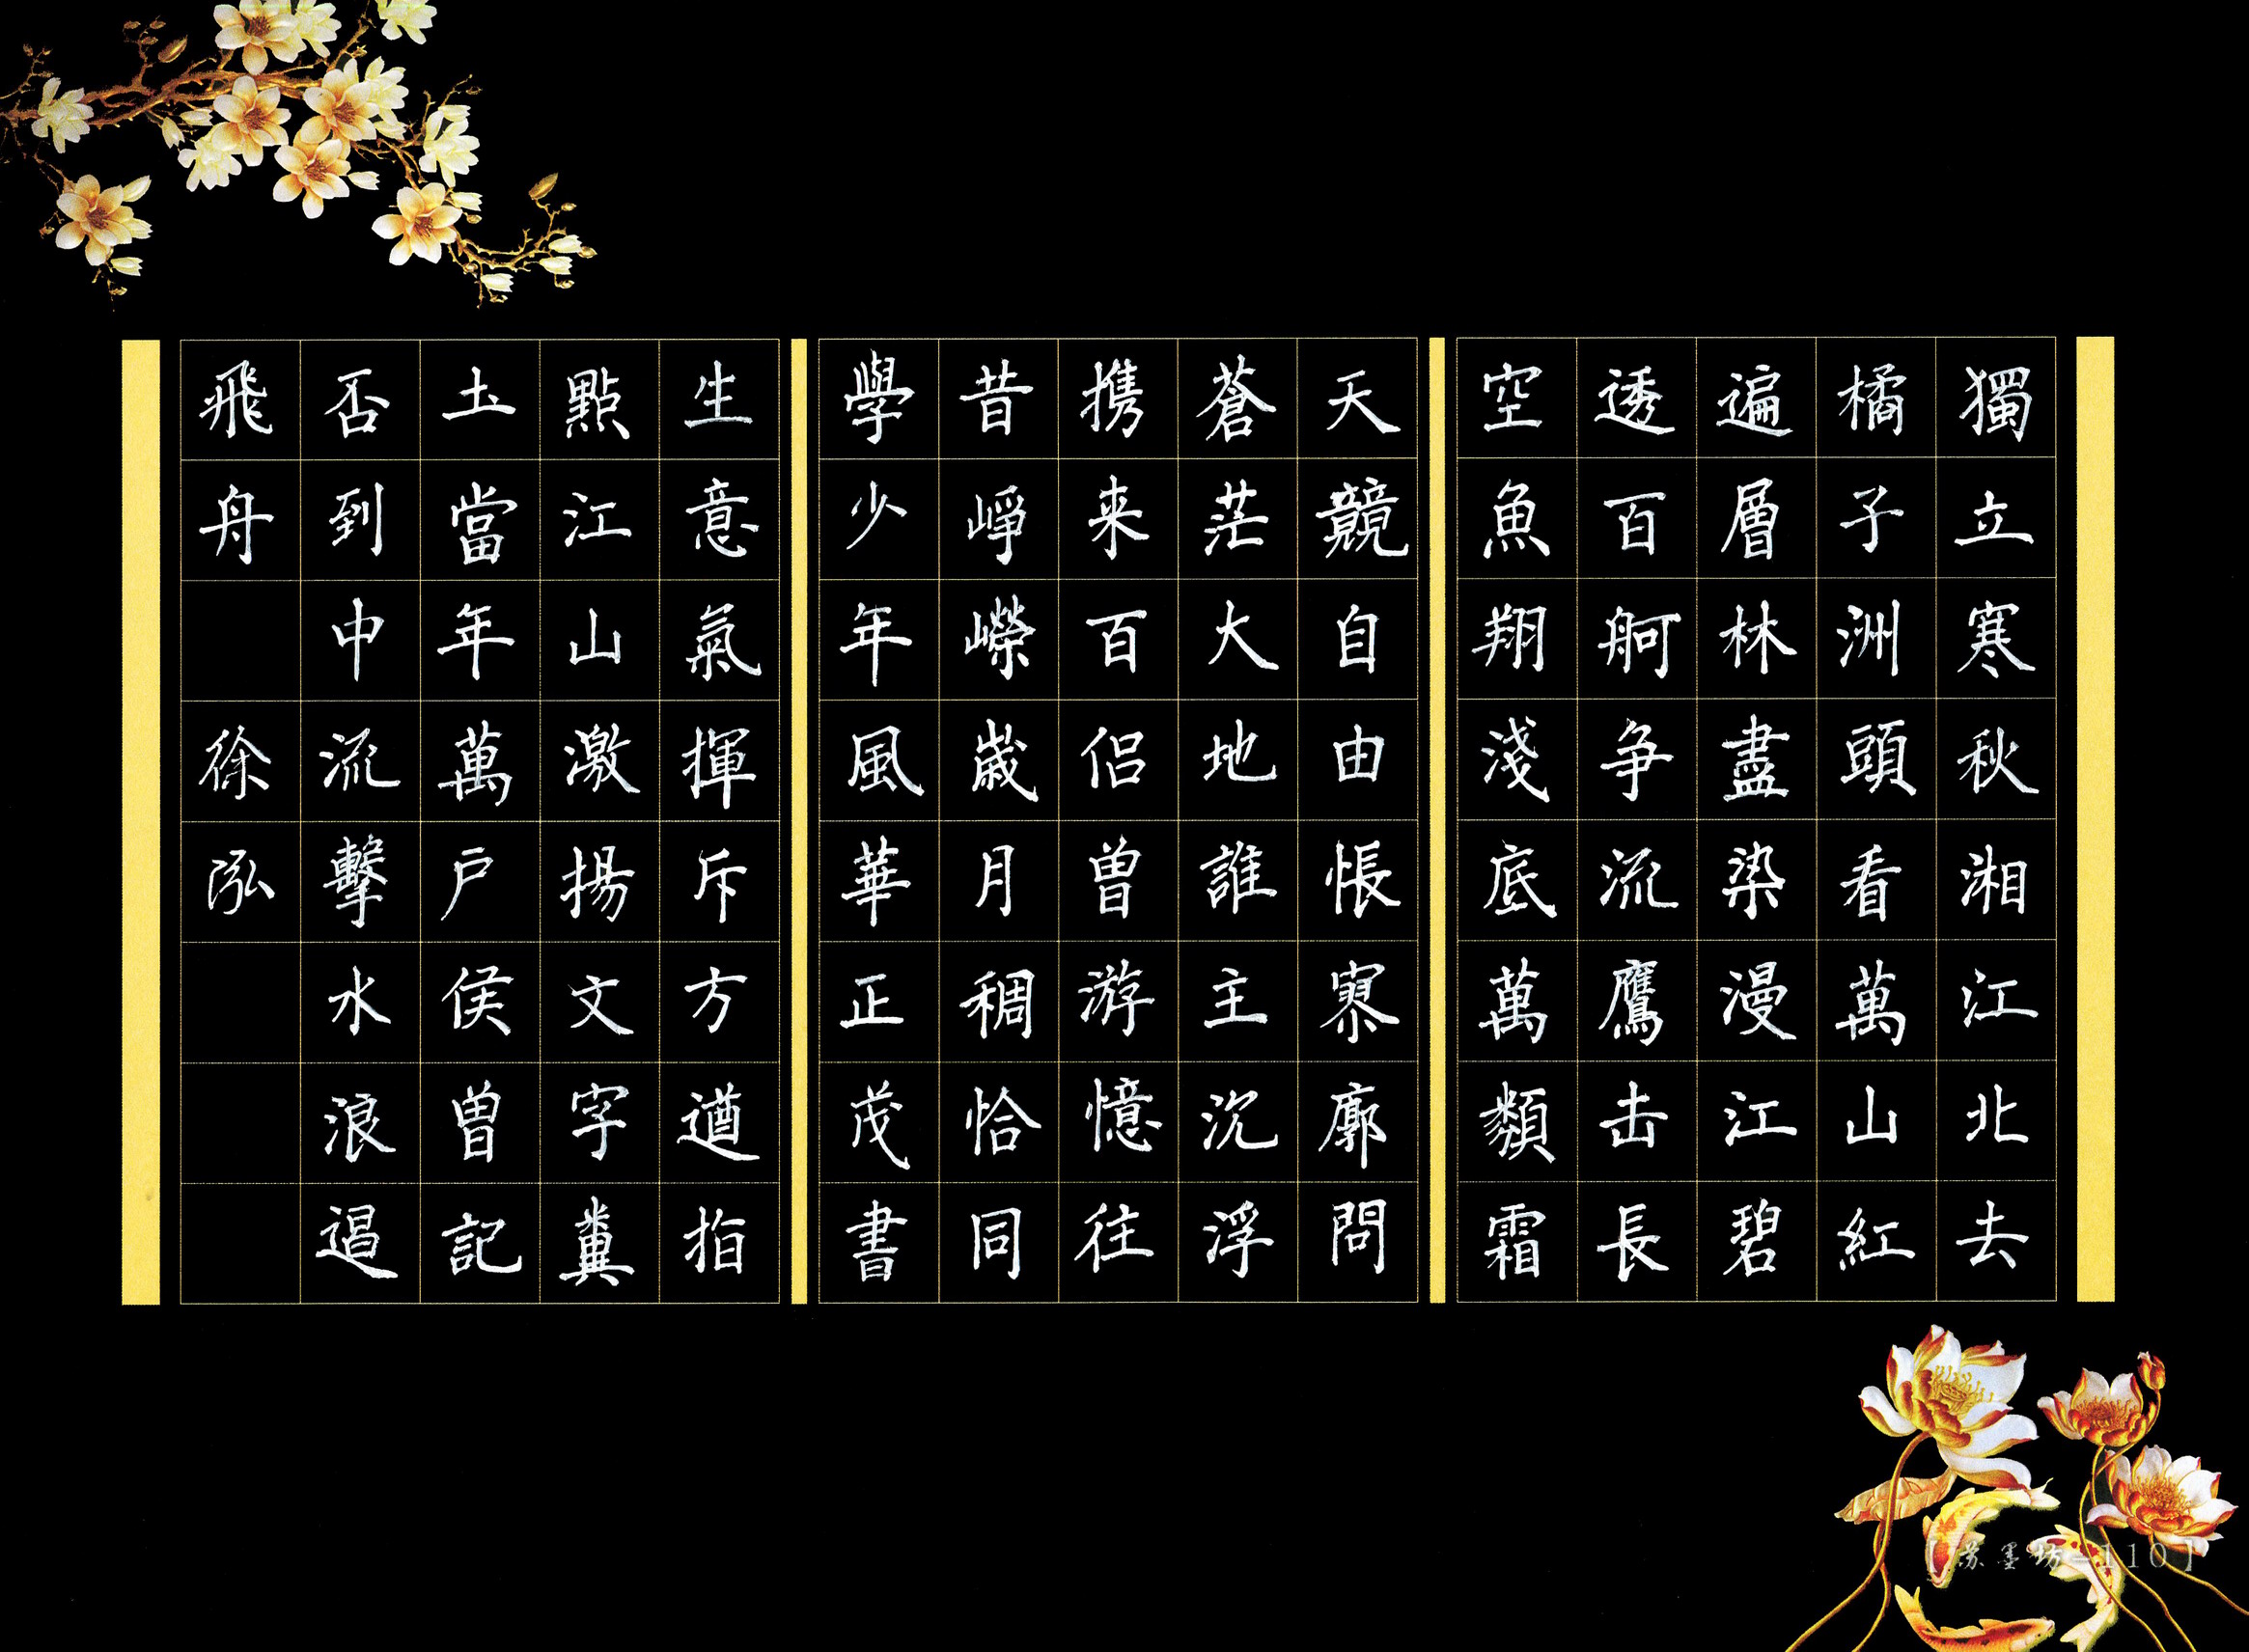 獨立寒秋湘江北去
橘子洲頭看萬山紅
遍層林盡染漫江碧
透百舸争流鷹击長
空魚翔淺底萬類霜
天競自由悵寥廓問
蒼茫大地誰主沉浮
携来百侣曾游憶往
昔崢嶸歲月稠恰同
學少年風華正茂書
生意氣揮斥方遒指
點江山激揚文字糞
土當年萬户侯曾記
否到中流擊水浪遏
飛舟 徐泓
【苏墨坊-110】